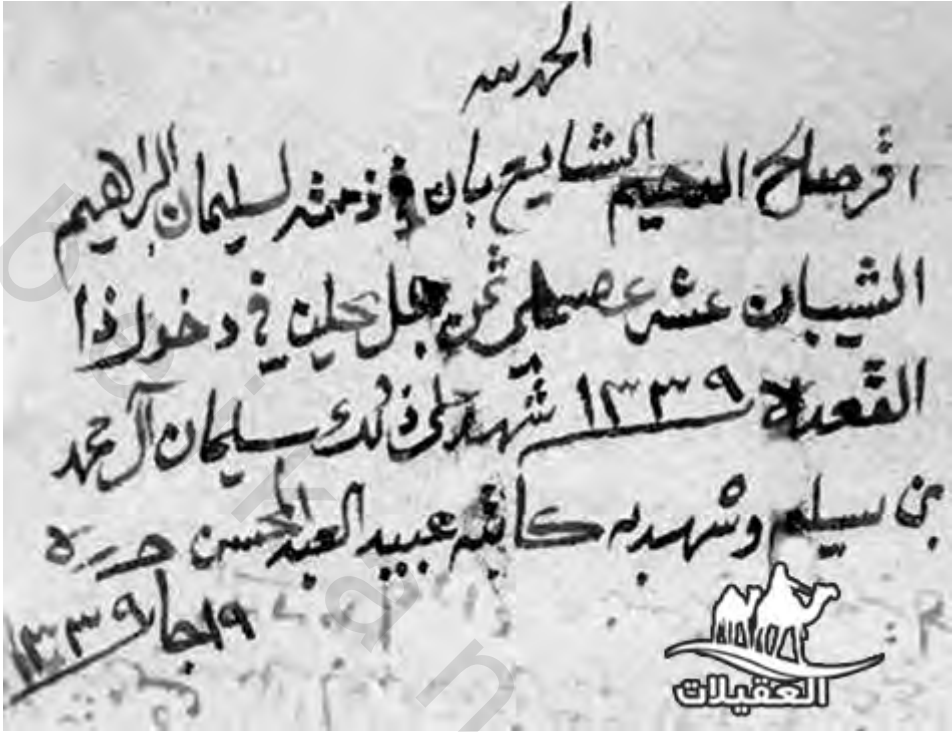 الحمد لله
اقر صالح السحيم الشايع بان في ذمته لسليمان البراهيم
الشيبان عشر عصملي ثمن جمل يحلن في دخول ذا
القعدة ١٣٣٩ شهد على ذلك سليمان آل محمد
بن سيلم وشهد به كاتبه عبيد العبدالمحسن حرره
١٩ جا ١٣٣٩
العقيلات